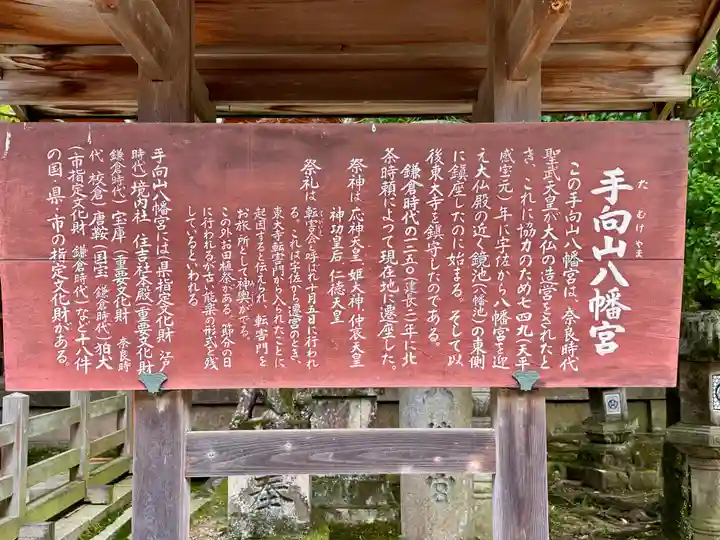 手向山八幡宮
た むけ やま
この手向山八幡宮は、奈良時代
聖武天皇が大仏の造営をされたと
き、これに協力のため七四九(天平
感宝元)年に宇佐から八幡宮を迎
え大仏殿の近く鏡池(八幡池)の東側
に鎮座したのに始まる。そして以
後東大寺を鎮守したのである。
鎌倉時代の一二五〇(建長二)年に北
条時頼によって現在地に遷座した。
祭神は 応神天皇 姫大神 仲哀天皇
神功皇后 仁徳天皇
祭礼は 転害会と呼ばれ十月五日に行われ
る。これは宇佐から遷宮のとき、
東大寺転害門から入られたことに
起因すると伝えられ、転害門を
お旅所として神輿がでる。
この外お田植祭がある。節分の日
に行われるが古い能楽の形式を残
しているといわれる。
手向山八幡宮には(県指定文化財 江戸
時代)境内社 住吉社本殿(重要文化財
鎌倉時代)宝庫(重要文化財 奈良時
代 校倉)唐鞍(国宝 鎌倉時代)狛犬
(市指定文化財 鎌倉時代)など十八件
の国・県・市の指定文化財がある。
奉
宮